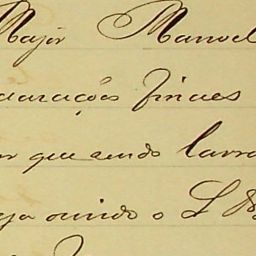 Major Manoel
darações finaes
que sendo lavra
ouvido o S